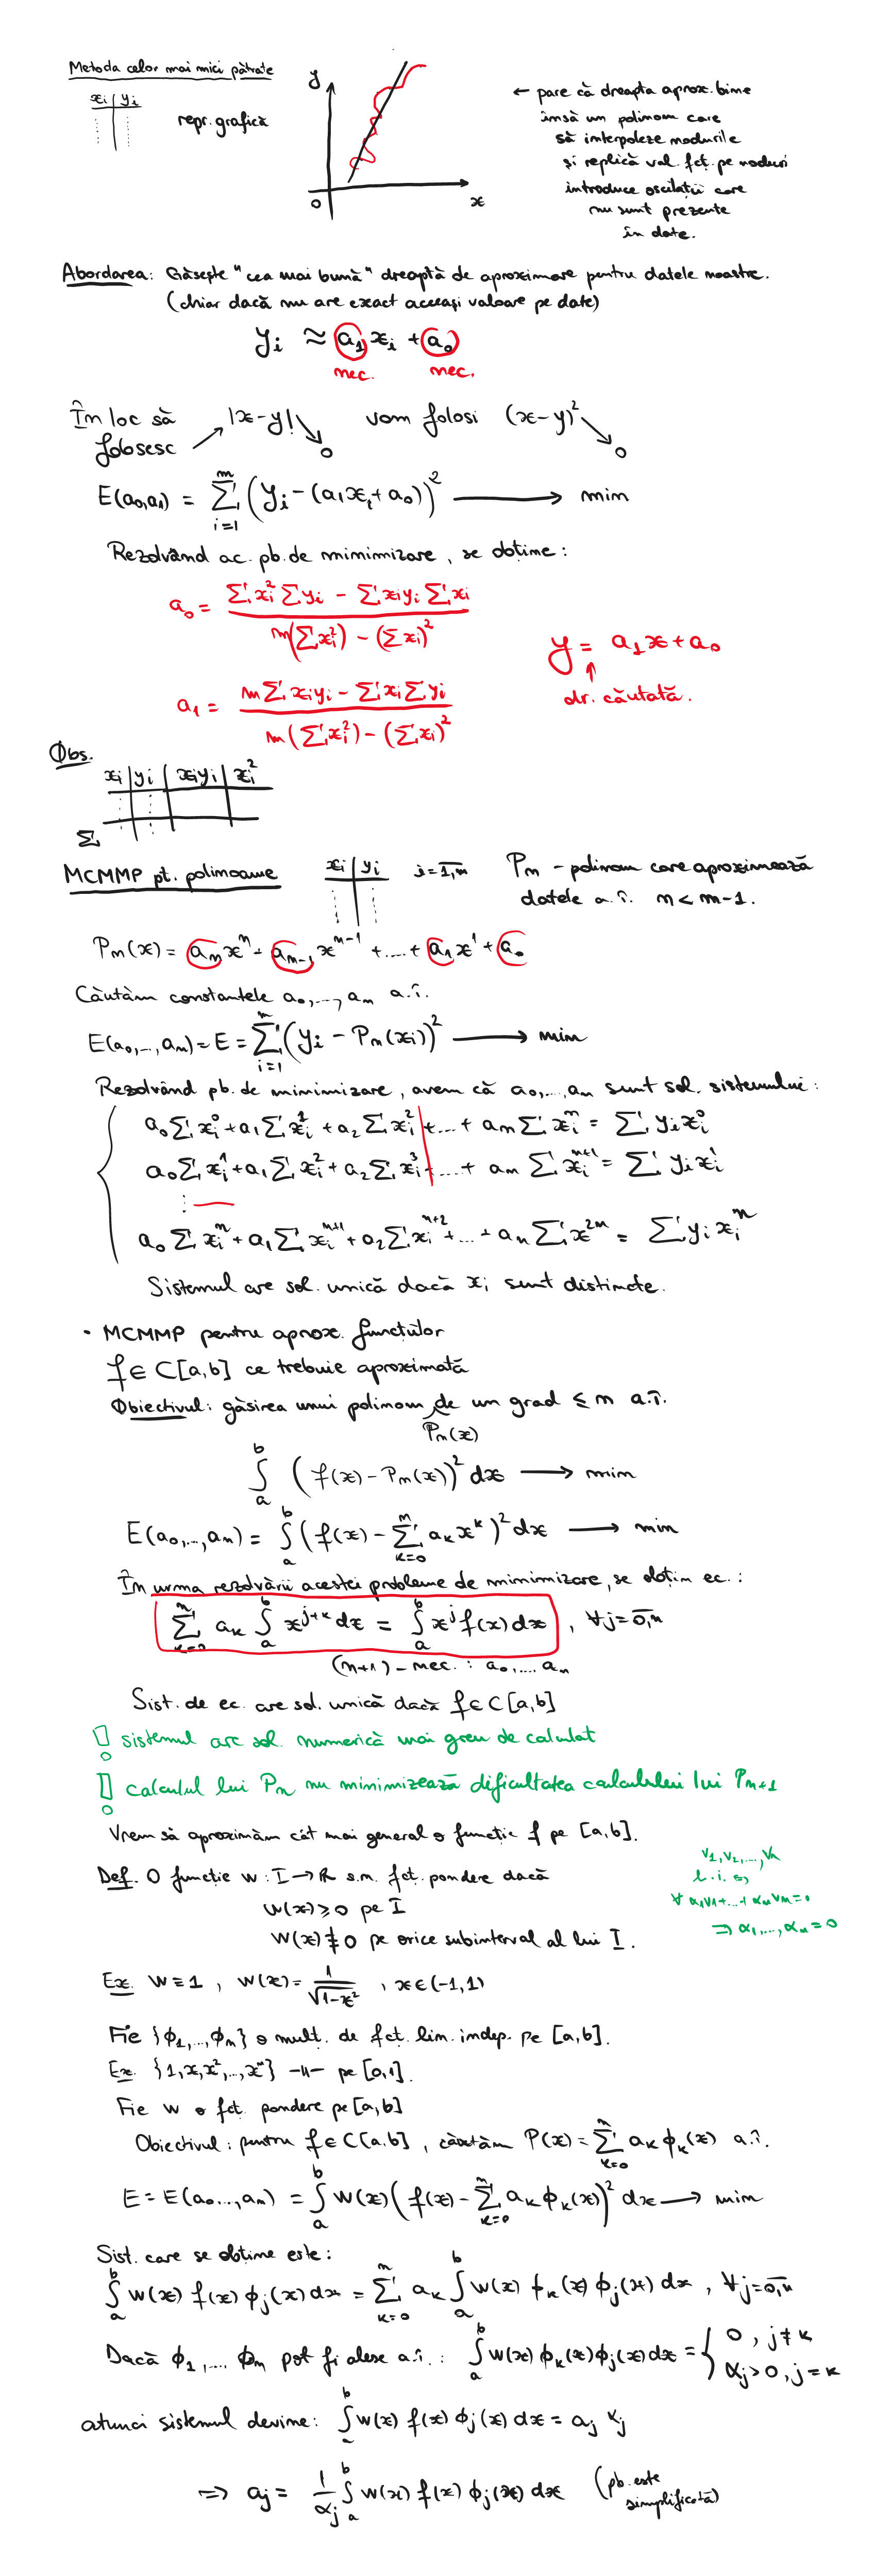 Metoda celor mai mici pătrate
xi | yi
repr. grafică
y
0
x
← pare că dreapta aprox. bine
însă un polinom care
să interpoleze nodurile
și replică val. fct. pe noduri
introduce oscilații care
nu sunt prezente
în date.
Abordarea: Găsește "cea mai bună" dreaptă de aproximare pentru datele noastre.
(chiar dacă nu are exact aceeași valoare pe date)
yi ≈ a1 xi + a0
nec. nec.
În loc să folosesc ↗ |x-y| ↘ 0 vom folosi (x-y)² ↘ 0
E(a0,a1) = Σ_{i=1}^{m} (yi - (a1xi + a0))² ⟶ min
Rezolvând ac. pb. de minimizare, se obține:
a0 = (Σxi² Σyi - Σxiyi Σxi) / (m(Σxi²) - (Σxi)²)
a1 = (mΣxiyi - Σxi Σyi) / (m(Σxi²) - (Σxi)²)
y = a1x + a0
↑
dr. căutată.
Obs.
xi | yi | xiyi | xi²
Σ
MCMMP pt. polinoame xi | yi i=1,m Pn - polinom care aproximează
datele a.î. n < m-1.
Pn(x) = an x^n + an-1 x^{n-1} + .... + a1 x^1 + a0
Căutăm constantele a0,...,an a.î.
E(a0,...,an) = E = Σ_{i=1}^{m} (yi - Pn(xi))² ⟶ min
Rezolvând pb. de minimizare, avem că a0,...,an sunt sol. sistemului:
a0 Σxi^0 + a1 Σxi^1 + a2 Σxi^2 + ... + an Σxi^n = Σ yi xi^0
a0 Σxi^1 + a1 Σxi^2 + a2 Σxi^3 + ... + an Σxi^{n+1} = Σ yi xi^1
⋮
a0 Σxi^n + a1 Σxi^{n+1} + a2 Σxi^{n+2} + ... + an Σx^{2n} = Σ yi xi^n
Sistemul are sol. unică dacă xi sunt distincte.
• MCMMP pentru aprox. funcțiilor
f ∈ C[a,b] ce trebuie aproximată
Obiectivul: găsirea unui polinom de un grad ≤ n a.î.
Pn(x)
∫_a^b (f(x) - Pn(x))² dx ⟶ min
E(a0,...,an) = ∫_a^b (f(x) - Σ_{k=0}^{n} ak x^k)² dx ⟶ min
În urma rezolvării acestei probleme de minimizare, se obțin ec.:
Σ_{k=0}^{n} ak ∫_a^b x^{j+k} dx = ∫_a^b x^j f(x) dx , ∀j=0,n
(n+1) - nec.: a0,....an
Sist. de ec. are sol. unică dacă f ∈ C[a,b]
! sistemul are sol. numerică mai greu de calculat
! calculul lui Pn nu minimizează dificultatea calculului lui Pn+1
Vrem să aproximăm cât mai general o funcție f pe [a,b].
Def. O funcție w: I → R s.n. fct. pondere dacă
w(x) ≥ 0 pe I
w(x) ≢ 0 pe orice subinterval al lui I.
v1,v2,...,vn
l.i. ⇔
∀ α1v1+...+αnvn=0
⇒ α1,...,αn=0
Ex. w ≡ 1 , w(x) = 1/√(1-x²) , x ∈ (-1,1)
Fie {ϕ1,...,ϕn} o mulț. de fct. lin. indep. pe [a,b].
Ex. {1,x,x²,...,x^n} -ıı- pe [0,1].
Fie w o fct. pondere pe [a,b]
Obiectivul: pentru f ∈ C[a,b], căutăm P(x) = Σ_{k=0}^{n} ak ϕk(x) a.î.
E = E(a0...,an) = ∫_a^b w(x) (f(x) - Σ_{k=0}^{n} ak ϕk(x))² dx ⟶ min
Sist. care se obține este:
∫_a^b w(x) f(x) ϕj(x) dx = Σ_{k=0}^{n} ak ∫_a^b w(x) ϕk(x) ϕj(x) dx , ∀j=0,n
Dacă ϕ1,.... ϕn pot fi alese a.î.: ∫_a^b w(x) ϕk(x) ϕj(x) dx = { 0 , j≠k
αj>0, j=k
atunci sistemul devine: ∫_a^b w(x) f(x) ϕj(x) dx = aj αj
⇒ aj = 1/αj ∫_a^b w(x) f(x) ϕj(x) dx (pb. este
simplificată)